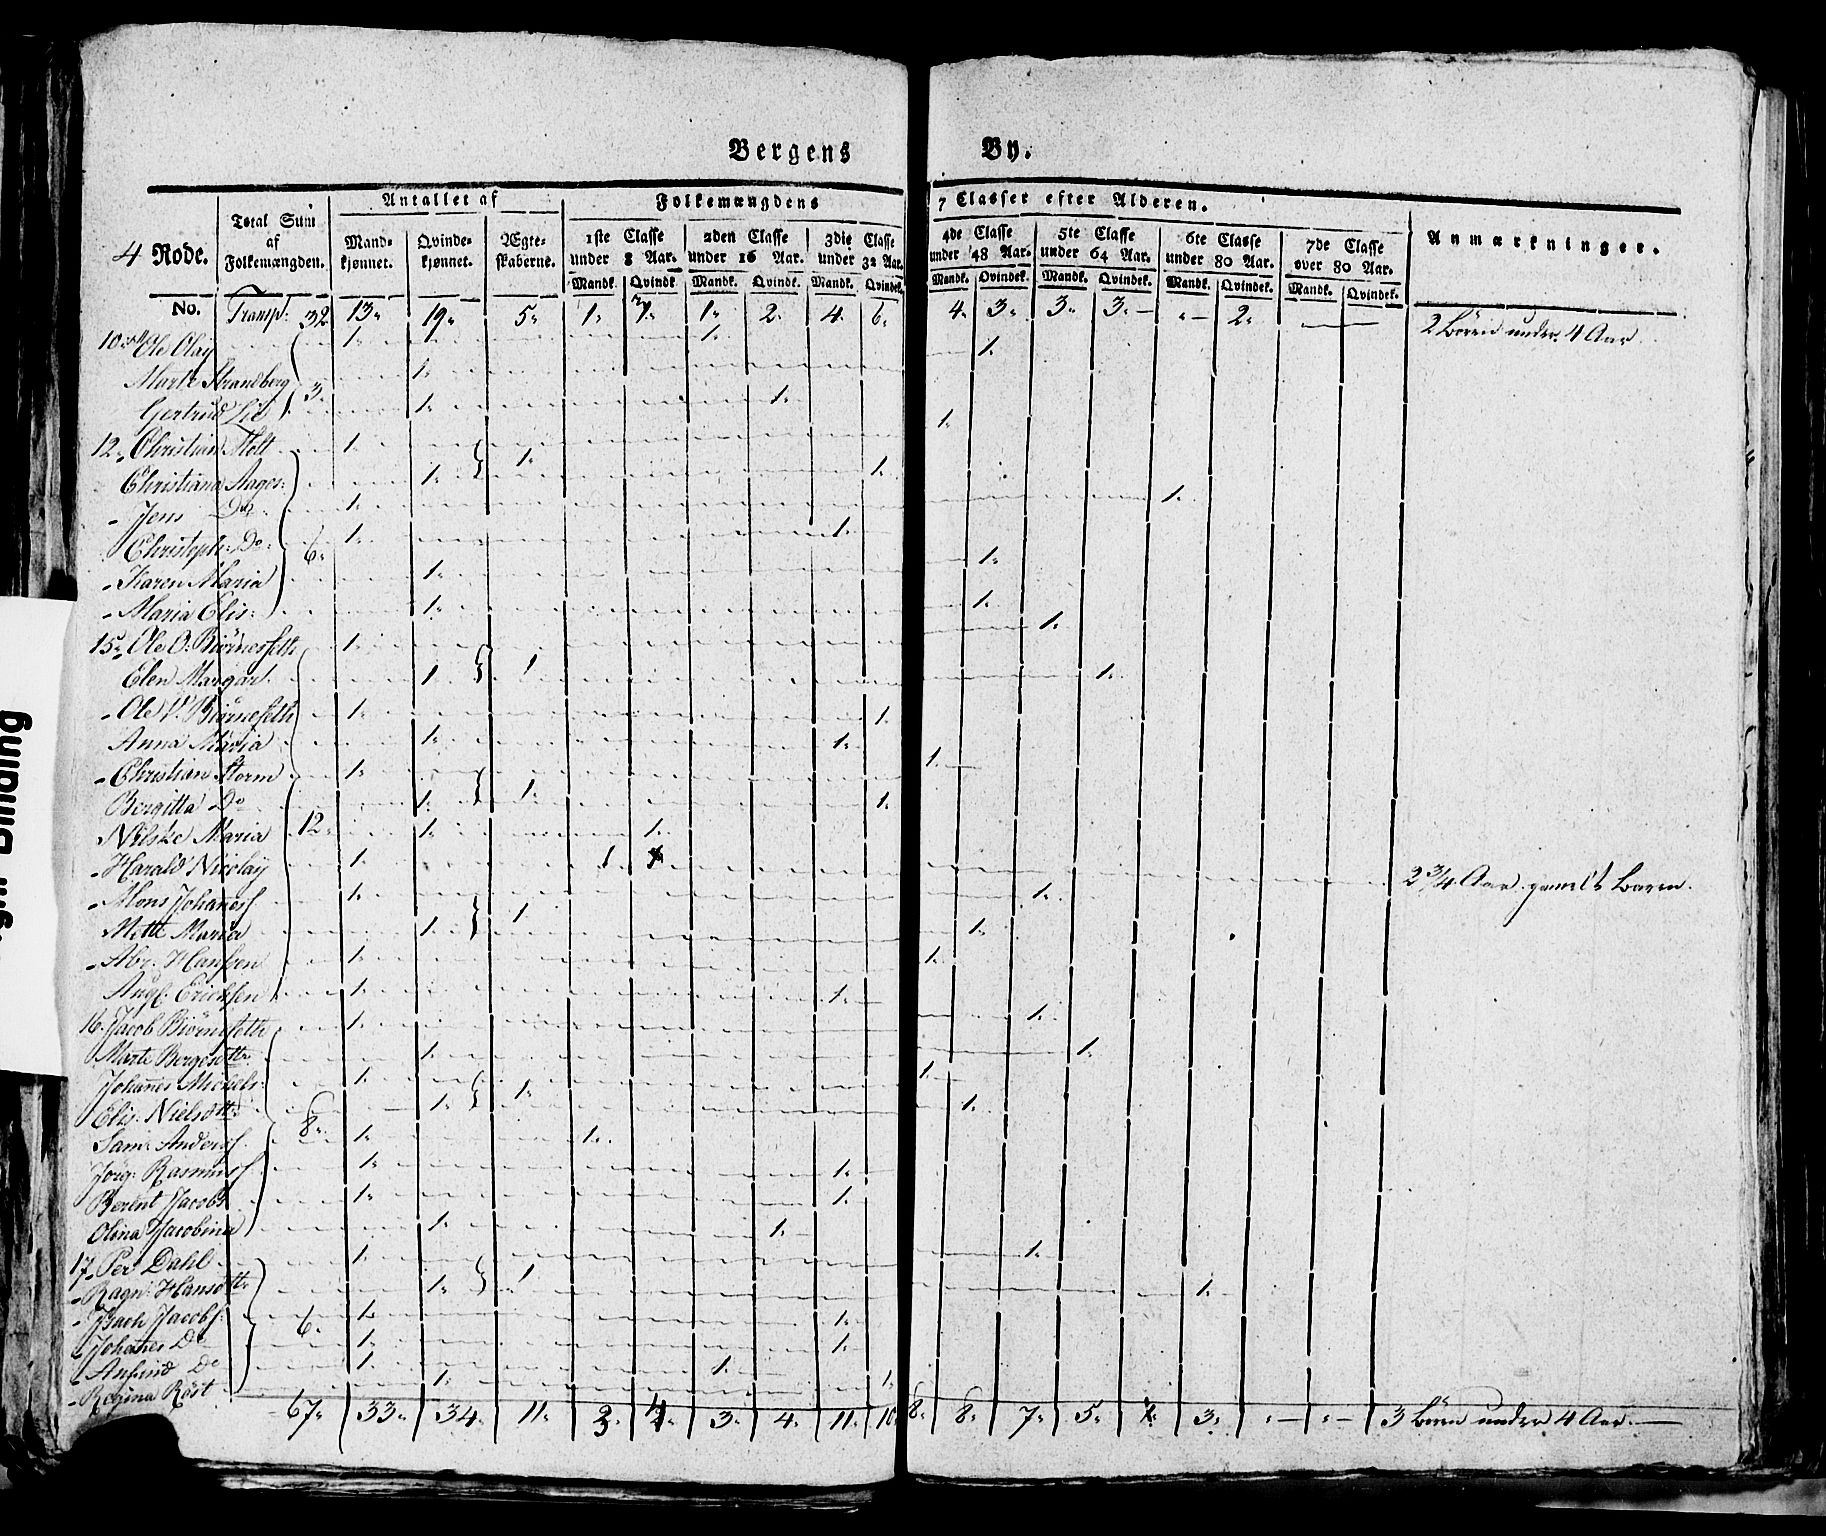 Bergens By.
4 Rode. Total Sum af Folkemængden. Antallet af Folkemængdens 7 Classer efter Alderen. Anmærkninger.
Mandkjønnet. Qvindekjønnet. Ægteskaberne. 1ste Classe under 8 Aar. 2den Classe under 16 Aar. 3die Classe under 32 Aar. 4de Classe under 48 Aar. 5te Classe under 64 Aar. 6te Classe under 80 Aar. 7de Classe over 80 Aar.
Mandk. Qvindk. Mandk. Qvindk. Mandk. Qvindek. Mandk. Qvindek. Mandk. Qvindek. Mandk. Qvindek. Mandk. Qvindek.
No. Transp: 32 13 19 5 1 1 2 4 6 4 3 3 3 - - 2 - 2 Børn under 4 Aar
10 Ole Olay 1 1
Marte Strandberg 3 1 1
Gertrud Lie 1 1
12 Christian Holt 1 1 1
Christiana Aages: 1 1
Jens Do 1 1
Christoph: Do 6 1 1
Karen Maria 1 1
Maria Elis: 1 1
15 Ole O: Biørneseth 1 1
Elen Margar. 1 1 1
Ole V. Biørneseth 1 1
Anna Maria 1 1
Christian Storm 1 1
Bergitta Do 1 1 1
Nilske Maria 12 1 1
Harald Nicolay 1 1 2 3/4 Aar gamelt Barn.
Mons Johanes 1 1
Mette Maria 1 1 1
Abr: Hansen 1 1
Ericksen 1 1
16 Jacob Biørneseth 1 1
Marte Bergesdttr 1 1
Johanes Mickels: 1 1
Elis: Nielsdttr 1 1 1
Sam: Anders 8 1 1
Jørg: Rasmus 1 1
Berent Jacobs 1 1
Olena Jacobina 1 1
17 Per Dahl 1 1
Ragn: Hansdttr 1 1 1
Jacobs: 1 1
Johanes Do 6 1 1
Do 1 1
Regina Røst 1 1
67 33 34 11 3 4 3 4 11 10 8 8 7 5 3 - - 3 Børn under 4 Aar.
Binding